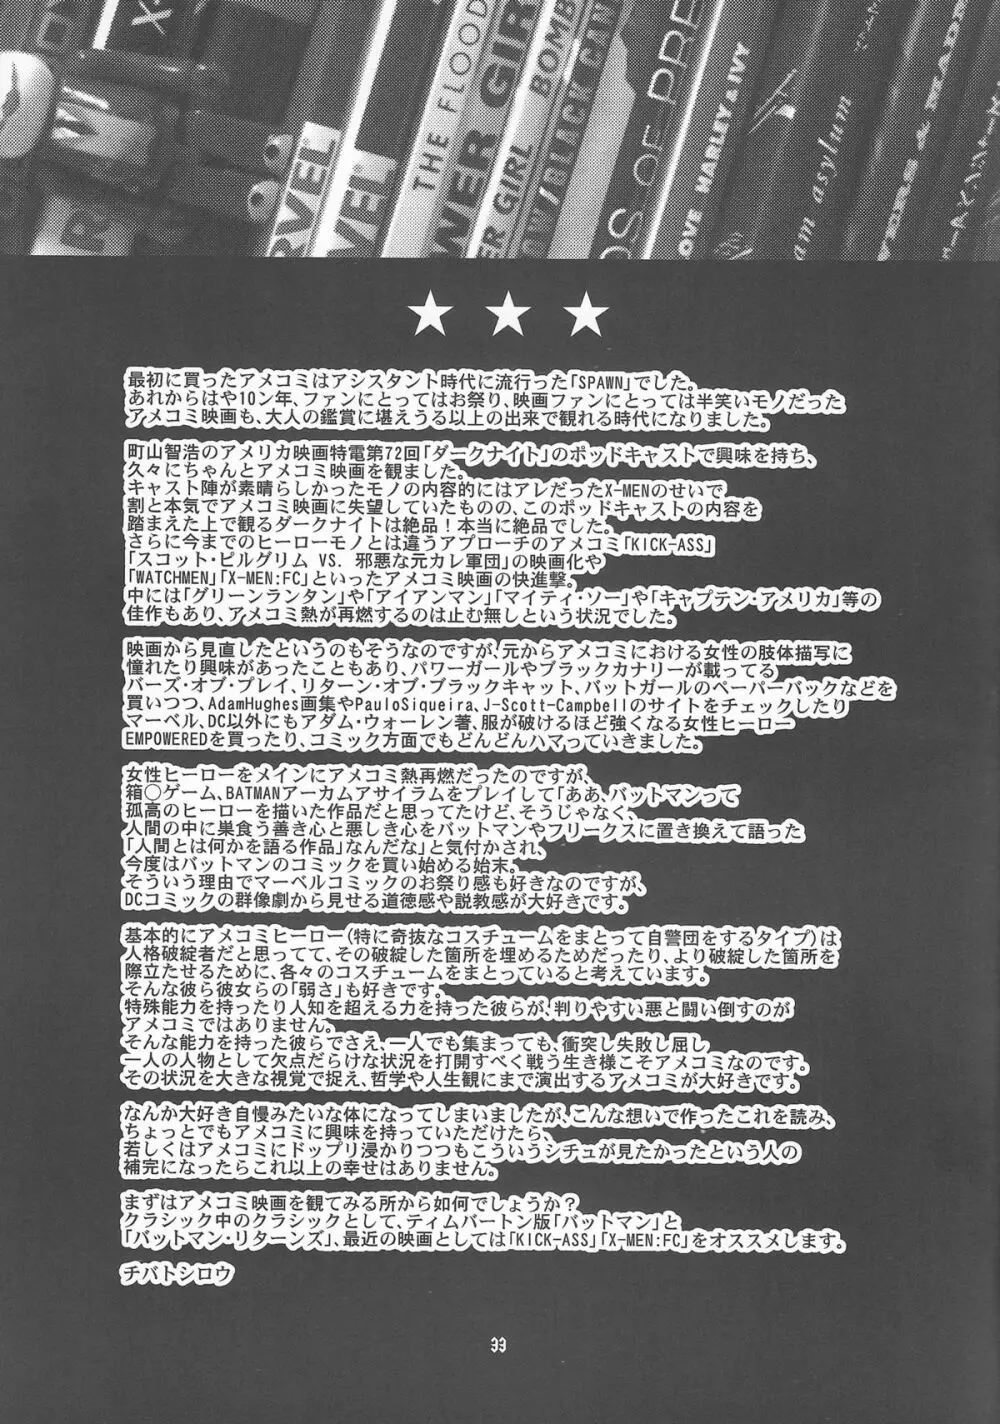 X-
MARVEL
MARVEL
THE FLOOD
POWER GIRL
POWER GIRL BOMB
/BLACK CAN
OF PRE
LOVE HARLEY & IVY
asylum
最初に買ったアメコミはアシスタント時代に流行った「SPAWN」でした。
あれからはや10ン年、ファンにとってはお祭り、映画ファンにとっては半笑いモノだった
アメコミ映画も、大人の鑑賞に堪えうる以上の出来で観れる時代になりました。
町山智浩のアメリカ映画特電第72回「ダークナイト」のポッドキャストで興味を持ち、
久々にちゃんとアメコミ映画を観ました。
キャスト陣が素晴らしかったモノの内容的にはアレだったX-MENのせいで
割と本気でアメコミ映画に失望していたものの、このポッドキャストの内容を
踏まえた上で観るダークナイトは絶品！本当に絶品でした。
さらに今までのヒーローモノとは違うアプローチのアメコミ「KICK-ASS」
「スコット・ピルグリム VS. 邪悪な元カレ軍団」の映画化や
「WATCHMEN」「X-MEN:FC」といったアメコミ映画の快進撃。
中には「グリーンランタン」や「アイアンマン」「マイティ・ソー」や「キャプテン・アメリカ」等の
佳作もあり、アメコミ熱が再燃するのは止む無しという状況でした。
映画から見直したというのもそうなのですが、元からアメコミにおける女性の肢体描写に
憧れたり興味があったこともあり、パワーガールやブラックカナリーが載ってる
バーズ・オブ・プレイ、リターン・オブ・ブラックキャット、バットガールのペーパーバックなどを
買いつつ、AdamHughes画集やPauloSiqueira、J-Scott-Campbellのサイトをチェックしたり
マーベル、DC以外にもアダム・ウォーレン著、服が破けるほど強くなる女性ヒーロー
EMPOWEREDを買ったり、コミック方面でもどんどんハマっていきました。
女性ヒーローをメインにアメコミ熱再燃だったのですが、
箱〇ゲーム、BATMANアーカムアサイラムをプレイして「ああ、バットマンって
孤高のヒーローを描いた作品だと思ってたけど、そうじゃなく、
人間の中に巣食う善き心と悪しき心をバットマンやフリークスに置き換えて語った
「人間とは何かを語る作品」なんだな」と気付かされ、
今度はバットマンのコミックを買い始める始末。
そういう理由でマーベルコミックのお祭り感も好きなのですが、
DCコミックの群像劇から見せる道徳感や説教感が大好きです。
基本的にアメコミヒーロー(特に奇抜なコスチュームをまとって自警団をするタイプ)は
人格破綻者だと思ってて、その破綻した箇所を埋めるためだったり、より破綻した箇所を
際立たせるために、各々のコスチュームをまとっていると考えています。
そんな彼ら彼女らの「弱さ」も好きです。
特殊能力を持ったり人知を超える力を持った彼らが、判りやすい悪と闘い倒すのが
アメコミではありません。
そんな能力を持った彼らでさえ、一人でも集まっても、衝突し失敗し屈し
一人の人物として欠点だらけな状況を打開すべく戦う生き様こそアメコミなのです。
その状況を大きな視覚で捉え、哲学や人生観にまで演出するアメコミが大好きです。
なんか大好き自慢みたいな体になってしまいましたが、こんな想いで作ったこれを読み、
ちょっとでもアメコミに興味を持っていただけたら、
若しくはアメコミにドップリ浸かりつつもこういうシチュが見たかったという人の
補完になったらこれ以上の幸せはありません。
まずはアメコミ映画を観てみる所から如何でしょうか？
クラシック中のクラシックとして、ティムバートン版「バットマン」と
「バットマン・リターンズ」、最近の映画としては「KICK-ASS」「X-MEN:FC」をオススメします。
チバトシロウ
33